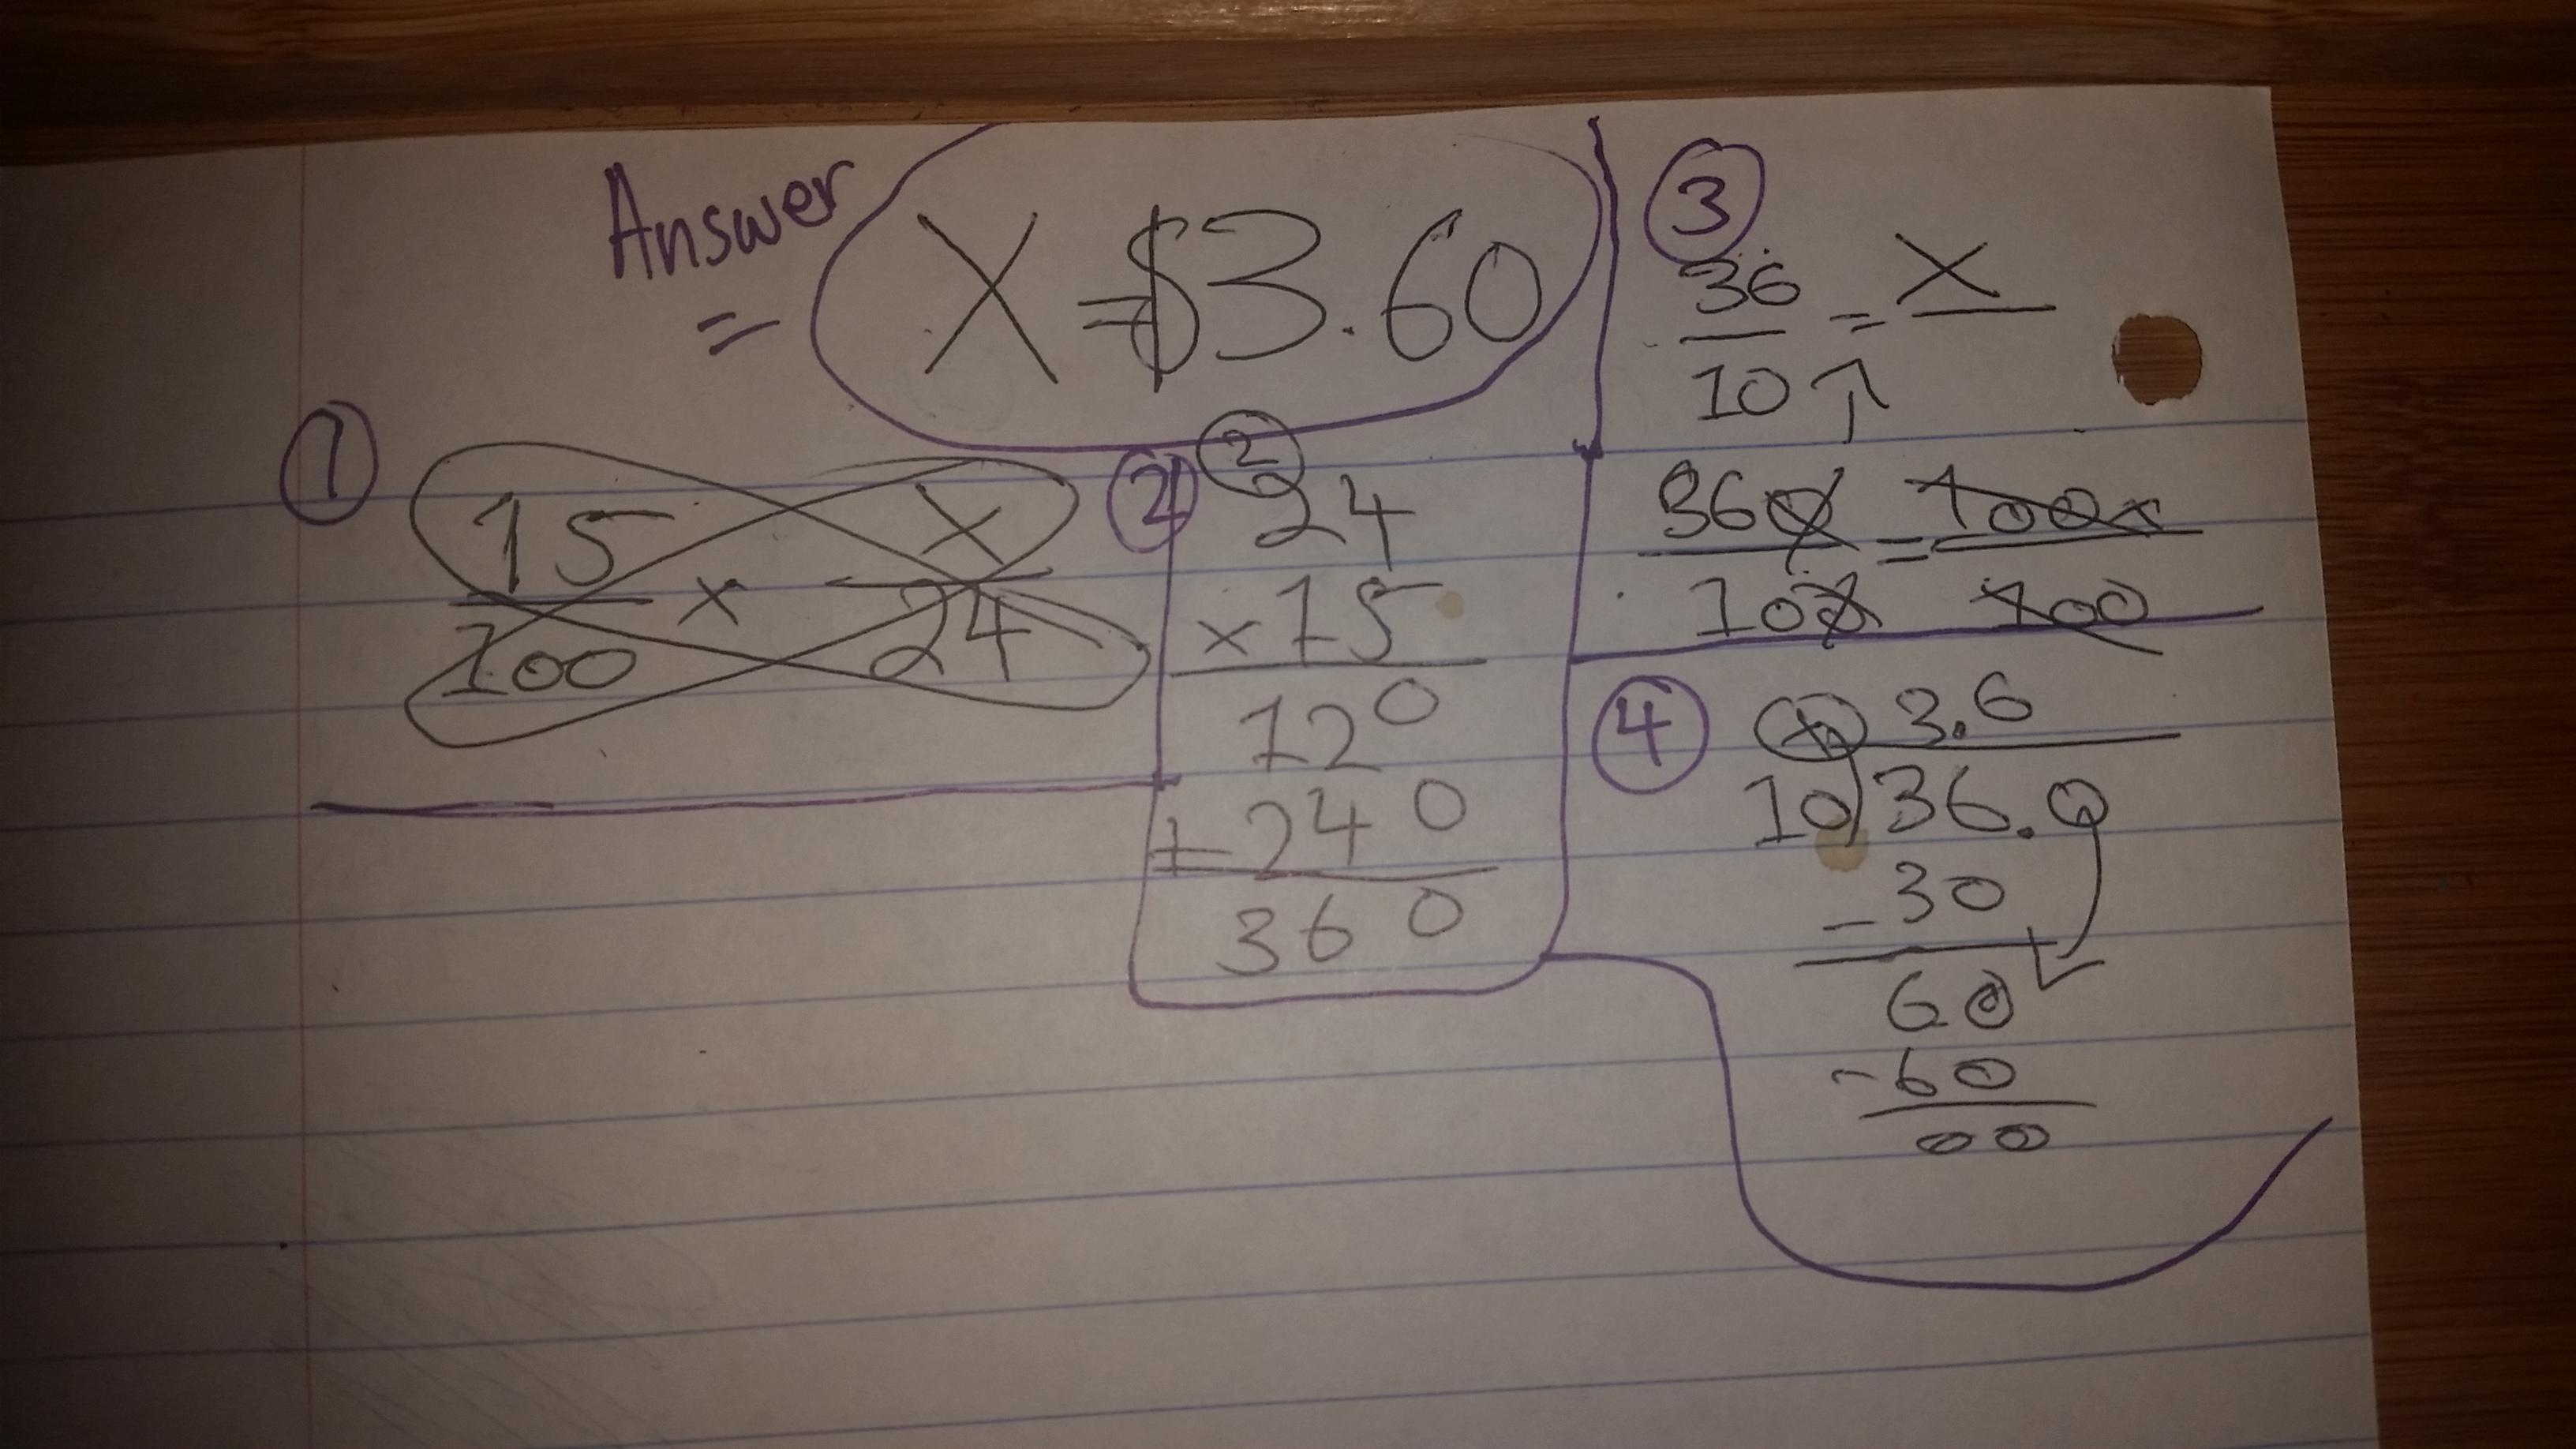 Answer
= X = $3.60
1
15 × X
100 24
2
2
24
×15
120
+ 240
360
3
36 = X
10 ↑
360 = 100x
100 100
4
x 3.6
10)36.0
- 30
60
- 60
00